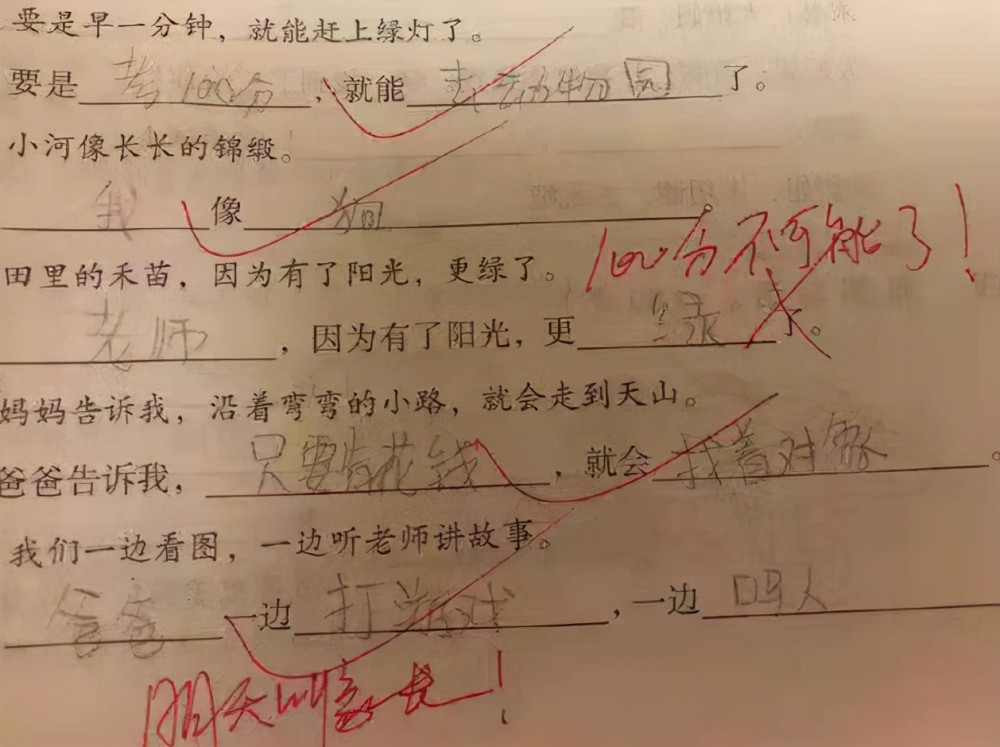 要是早一分钟，就能赶上绿灯了。
要是考100分，就能去动物园了。
小河像长长的锦缎。
我像狗。
100分不可能了！
田里的禾苗，因为有了阳光，更绿了。
老师，因为有了阳光，更绿了。
妈妈告诉我，沿着弯弯的小路，就会走到天山。
爸爸告诉我，只要肯花钱，就会找着对象。
我们一边看图，一边听老师讲故事。
爸爸一边打游戏，一边骂人
明天叫家长！